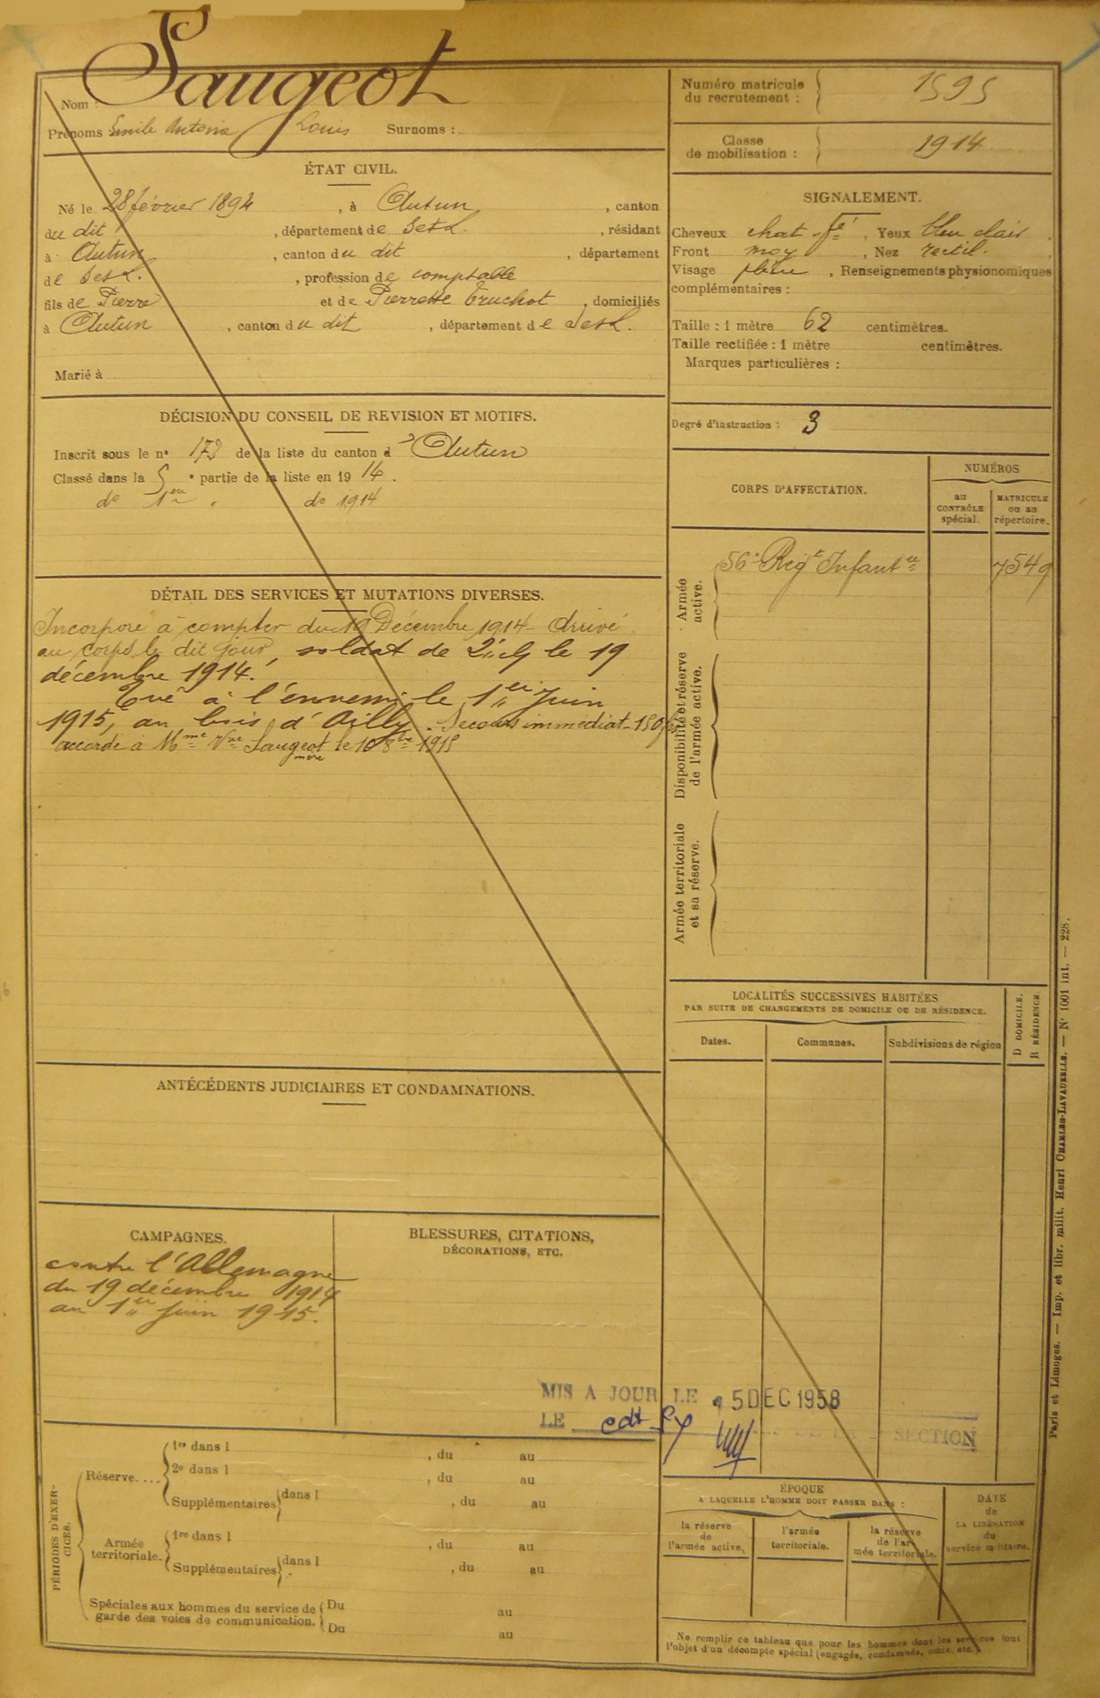 Nom : Saugeot
Prénoms Emile Antoine Louis Surnoms :
ÉTAT CIVIL.
Né le 28 février 1894, à Autun, canton
du dit, département de S et L., résidant
à Autun, canton du dit, département
de S et L., profession de comptable
fils de Pierre et de Pierrette Truchot, domiciliés
à Autun, canton du dit, département de S et L.
Marié à
DÉCISION DU CONSEIL DE REVISION ET MOTIFS.
Inscrit sous le n° 172 de la liste du canton d' Autun
Classé dans la 5 e partie de la liste en 1914.
do 1ère do de 1914
DÉTAIL DES SERVICES ET MUTATIONS DIVERSES.
Incorporé à compter du 19 Décembre 1914 Arrivé
au corps le dit jour, soldat de 2e cl le 19
décembre 1914.
Tué à l'ennemi le 1er Juin
1915, au bois d'Ailly. Secours immédiat 150f
accordé à Mme Vve Saugeot le 10 8bre 1915
mère
ANTÉCÉDENTS JUDICIAIRES ET CONDAMNATIONS.
CAMPAGNES.
contre l'Allemagne
du 19 décembre 1914
au 1er Juin 1915.
BLESSURES, CITATIONS,
DÉCORATIONS, ETC.
PÉRIODES D'EXER-
CICES.
Réserve....
1re dans l , du au
2e dans l , du au
Supplémentaires dans l , du au
Armée
territoriale.
1re dans l , du au
Supplémentaires dans l , du au
Spéciales aux hommes du service de
garde des voies de communication.
Du au
Du au
Numéro matricule
du recrutement : 1595
Classe
de mobilisation : 1914
SIGNALEMENT.
Cheveux chat fcé, Yeux bleu clair
Front moy, Nez rectil.
Visage plein, Renseignements physionomiques
complémentaires :
Taille : 1 mètre 62 centimètres.
Taille rectifiée : 1 mètre centimètres.
Marques particulières :
Degré d'instruction : 3
CORPS D'AFFECTATION.
NUMÉROS
au
CONTRÔLE
spécial.
MATRICULE
ou au
répertoire.
Armée
active.
56e Régt Infantie 7549
Disponibilité et réserve
de l'armée active.
Armée territoriale
et sa réserve.
LOCALITÉS SUCCESSIVES HABITÉES
PAR SUITE DE CHANGEMENTS DE DOMICILE OU DE RÉSIDENCE.
Dates.
Communes.
Subdivisions de région
D DOMICILE.
R RÉSIDENCE
MIS A JOUR LE 5 DEC 1958
LE
SECTION
ÉPOQUE
A LAQUELLE L'HOMME DOIT PASSER DANS :
la réserve
de
l'armée active.
l'armée
territoriale.
la réserve
de l'ar
mée territoriale.
DATE
de
LA LIBÉRATION
du
service militaire.
Ne remplir ce tableau que pour les hommes dont les services font
l'objet d'un décompte spécial (engagés, condamnés, omis, etc.)
Paris et Limoges. — Imp. et libr. milit. Henri CHARLES-LAVAUZELLE. — N° 1001 int. — 228.